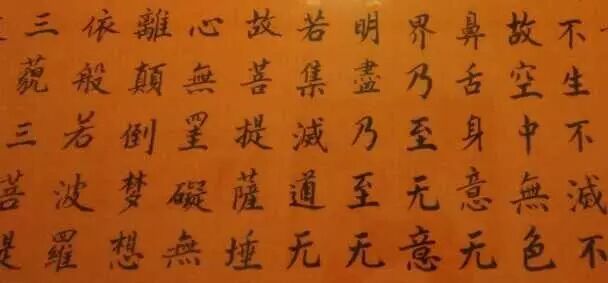 不生不滅不
故空中無色
鼻舌身意无
界乃至无意
明盡乃至无
若集滅道无
故菩提薩埵
心無罣礙無
離顛倒梦想
依般若波羅
三藐三菩提